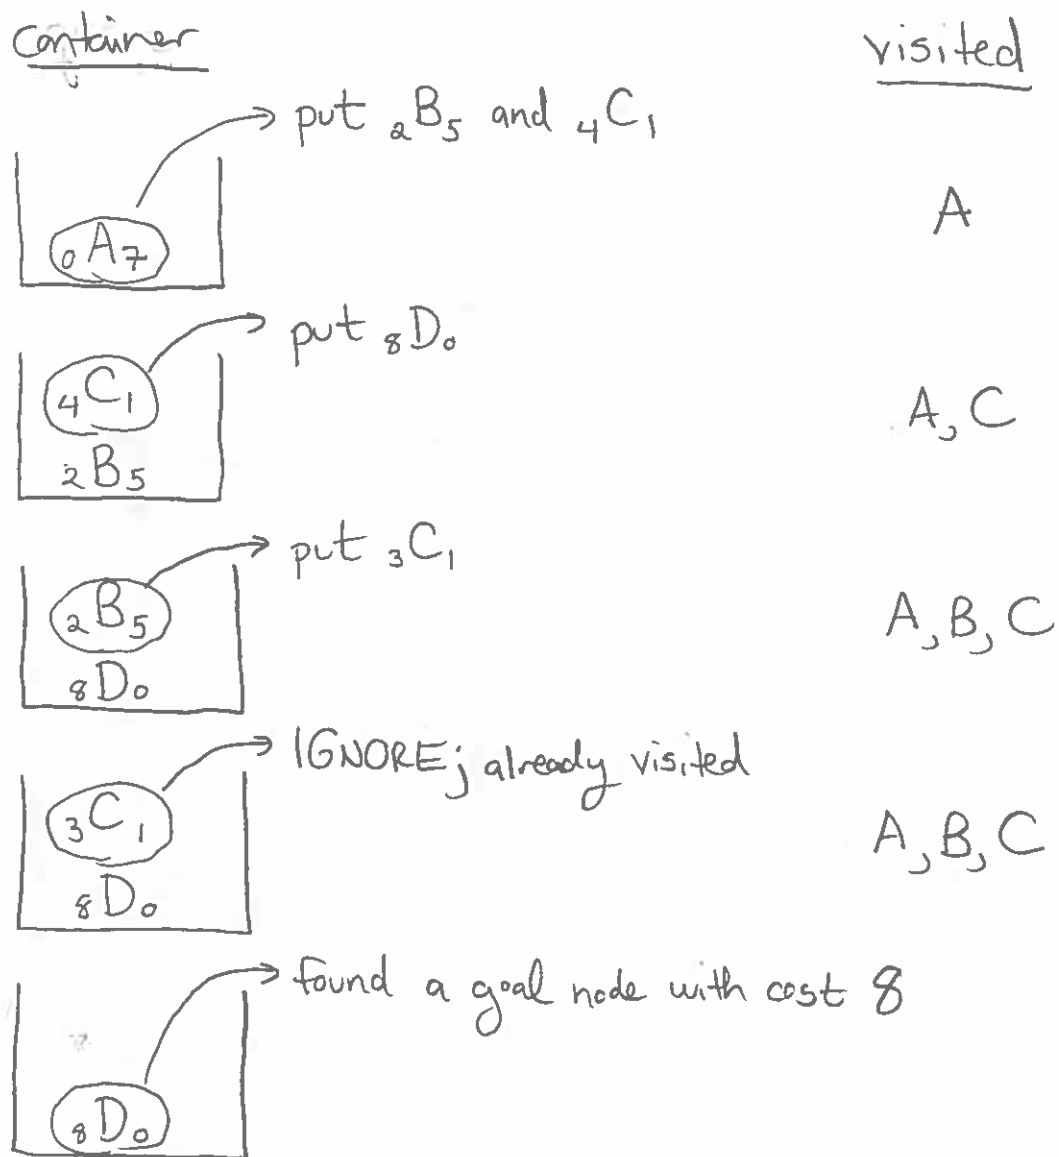 container visited
put ₂B₅ and ₄C₁
A
₀A₇
put ₈D₀
₄C₁
A, C
₂B₅
put ₃C₁
₂B₅
A, B, C
₈D₀
IGNORE; already visited
₃C₁
A, B, C
₈D₀
found a goal node with cost 8
₈D₀